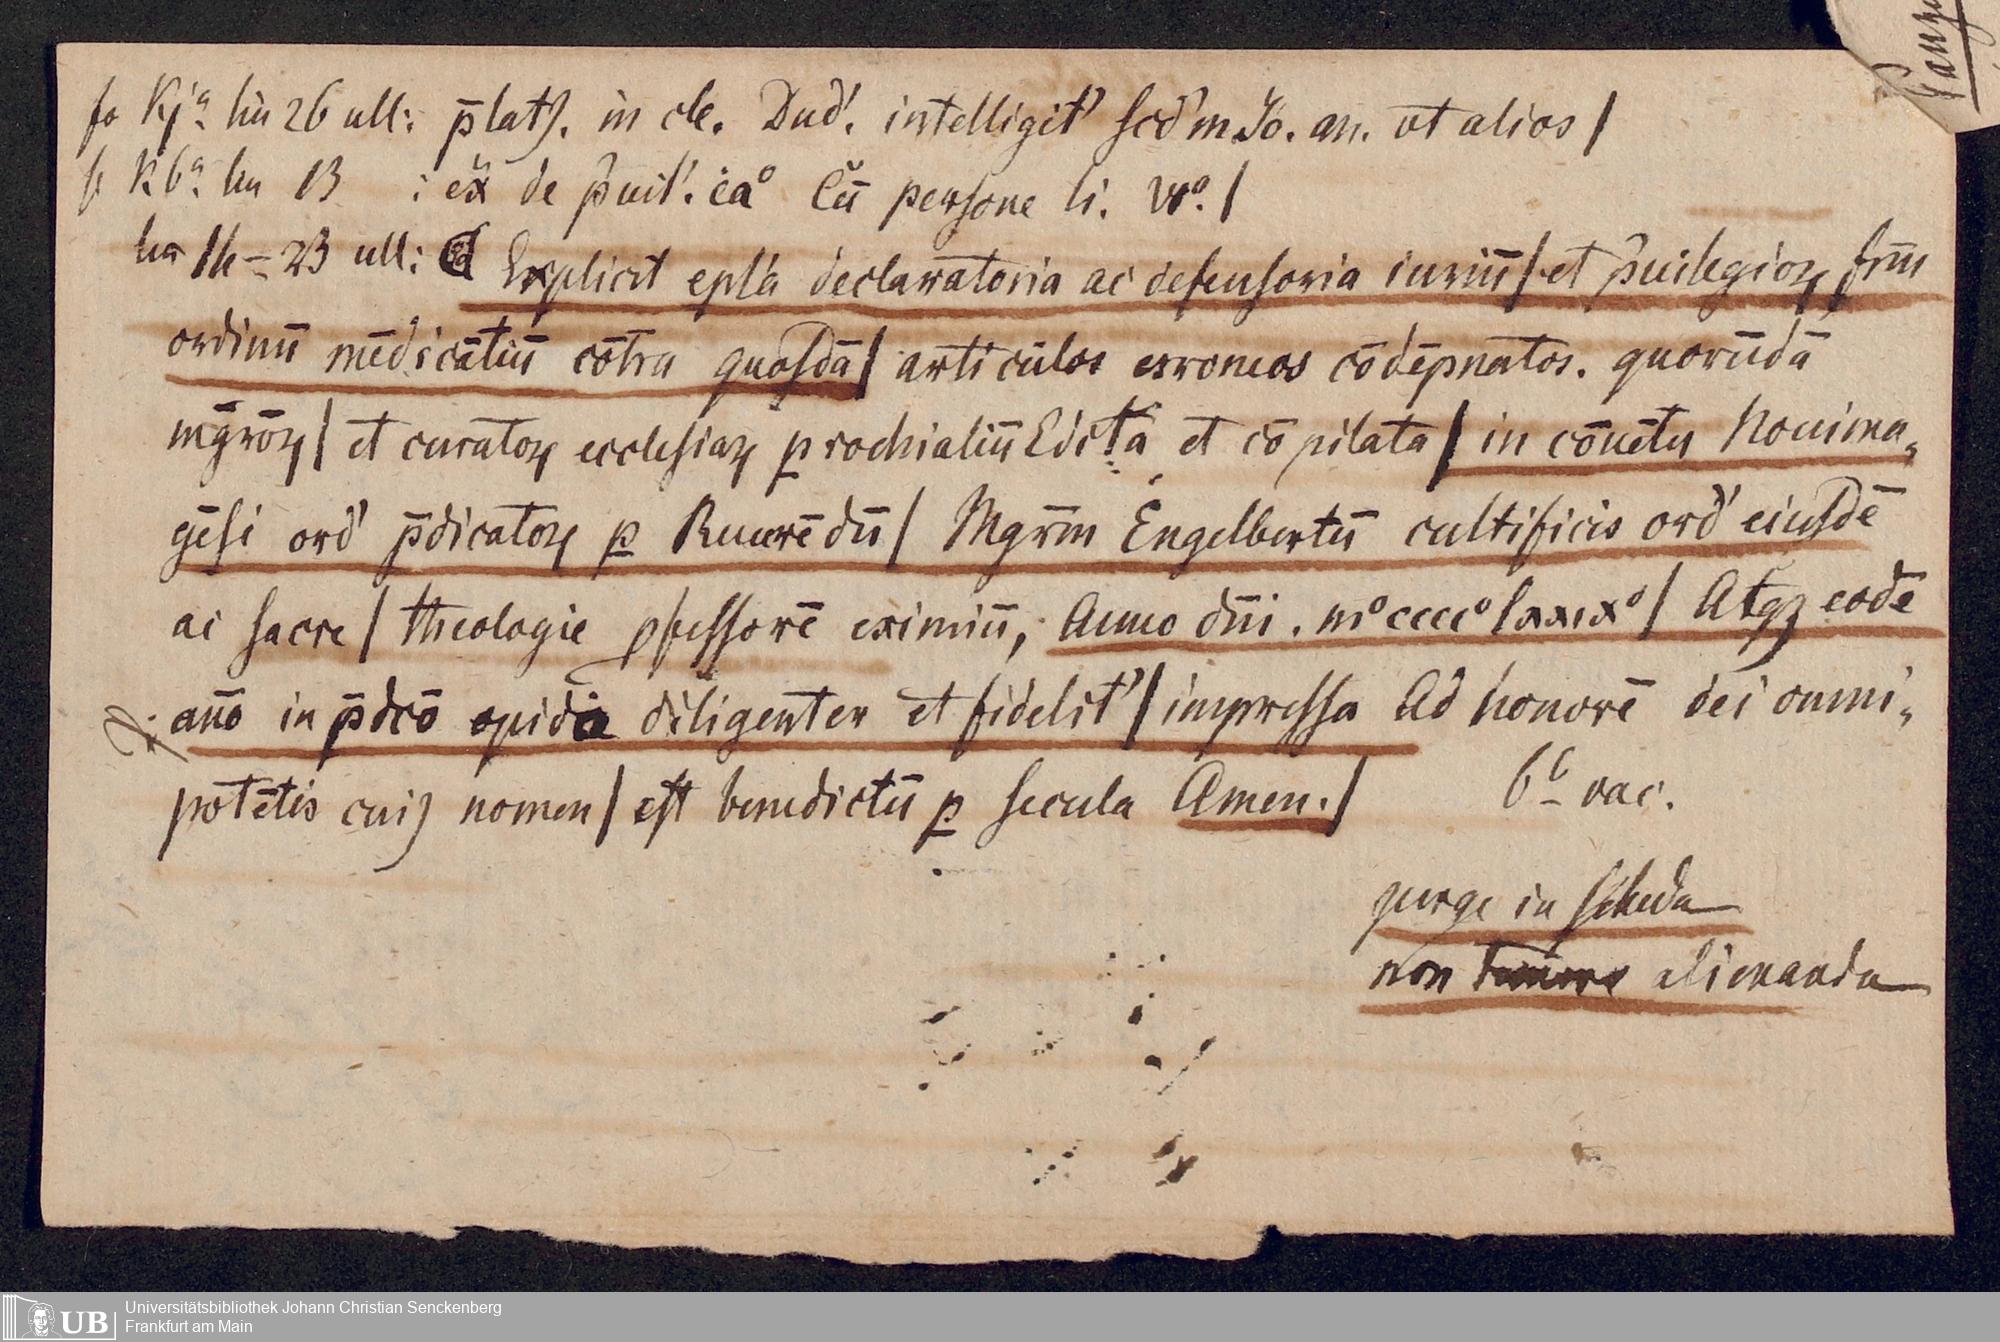 fo Kjª lin 26 ult: p̄latꝫ. in cle. Dud'. intelligit' scd'm Jo. an. ut alios /
f K6ª lin 13 : ex̄ de p̄uil'. ca° Cū persone li. vi°. /
lin 16 – 23 ult: Explicit epl'a declaratoria ac defensoria iuriū / et p̄uilegioꝝ fr̄m
ordinū mēdicātiū cōtra quosdā / articulos erroneos cōdēpnatos. quorūdā
mgr̄oꝝ / et curatoꝝ ecclesiaꝝ ꝑrochialiū Edicta et cōpilata / in cōuētu Nouima„
gēsi ord' p̄dicatoꝝ ꝑ Reuerēdū / Mgr̄m Engelbertū cultificis ord' eiusdē
ac sacre / theologie ꝓfessorē eximiū, Anno dn̄i. m°cccc°lxxix° / Atqꝫ eodē
an̄o in p̄dcō opido diligenter et fidelit' / impressa Ad honorē dei omni„
potētis cuiꝫ nomen / est benedictū ꝑ secula Amen. / 6ᵇ vac.
perge in scheda
non alienanda
Universitätsbibliothek Johann Christian Senckenberg
Frankfurt am Main
UB